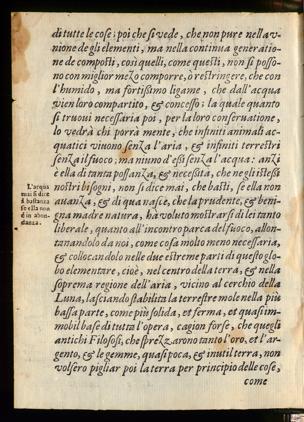 di tutte le cose; poi che si vede, che non pure nella v-
nione degli elementi, ma nella continua generatio-
ne de composti, così quelli, come questi, non si posso-
no con miglior mezo comporre, ò restringere, che con
l'humido, ma fortißimo ligame, che dall'acqua
vien loro compartito, & concesso; la quale quanto
si truoui necessaria poi, per la loro conseruatione,
lo vedrà chi porrà mente, che infiniti animali ac-
quatici viuono senza l'aria, & infiniti terrestri
senza il fuoco; ma niuno d'eßi senza l'acqua: anzi
è ella di tanta possanza, & necessità, che negli isteßi
nostri bisogni, non si dice mai, che basti, se ella non
auanza, & di qua nasce, che la prudente, & beni-
gna madre natura, ha voluto mostrarsi di lei tanto
liberale, quanto all'incontro parca del fuoco, allon-
tanandolo da noi, come cosa molto meno necessaria,
& collocandolo nelle due estreme parti di questo glo-
bo elementare, cioè, nel centro della terra, & nella
soprema regione dell'aria, vicino al cerchio della
Luna, lasciando stabilita la terrestre mole nella più
bassa parte, come più solida, et ferma, et quasi im-
mobil base di tutta l'opera, cagion forse, che quegli
antichi Filosofi, che sprezzarono tanto l'oro, et l'ar-
gento, & le gemme, quasi poca, & inutil terra, non
volsero pigliar poi la terra per principio delle cose,
come
L'acqua
mai si dice
à bastanza
se ella non
è in abon-
danza.